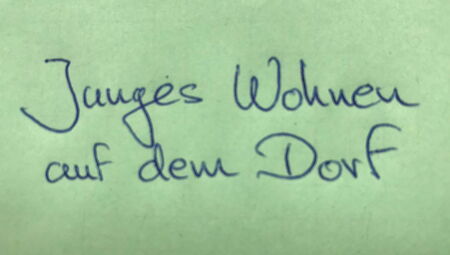 Junges Wohnen
auf dem Dorf